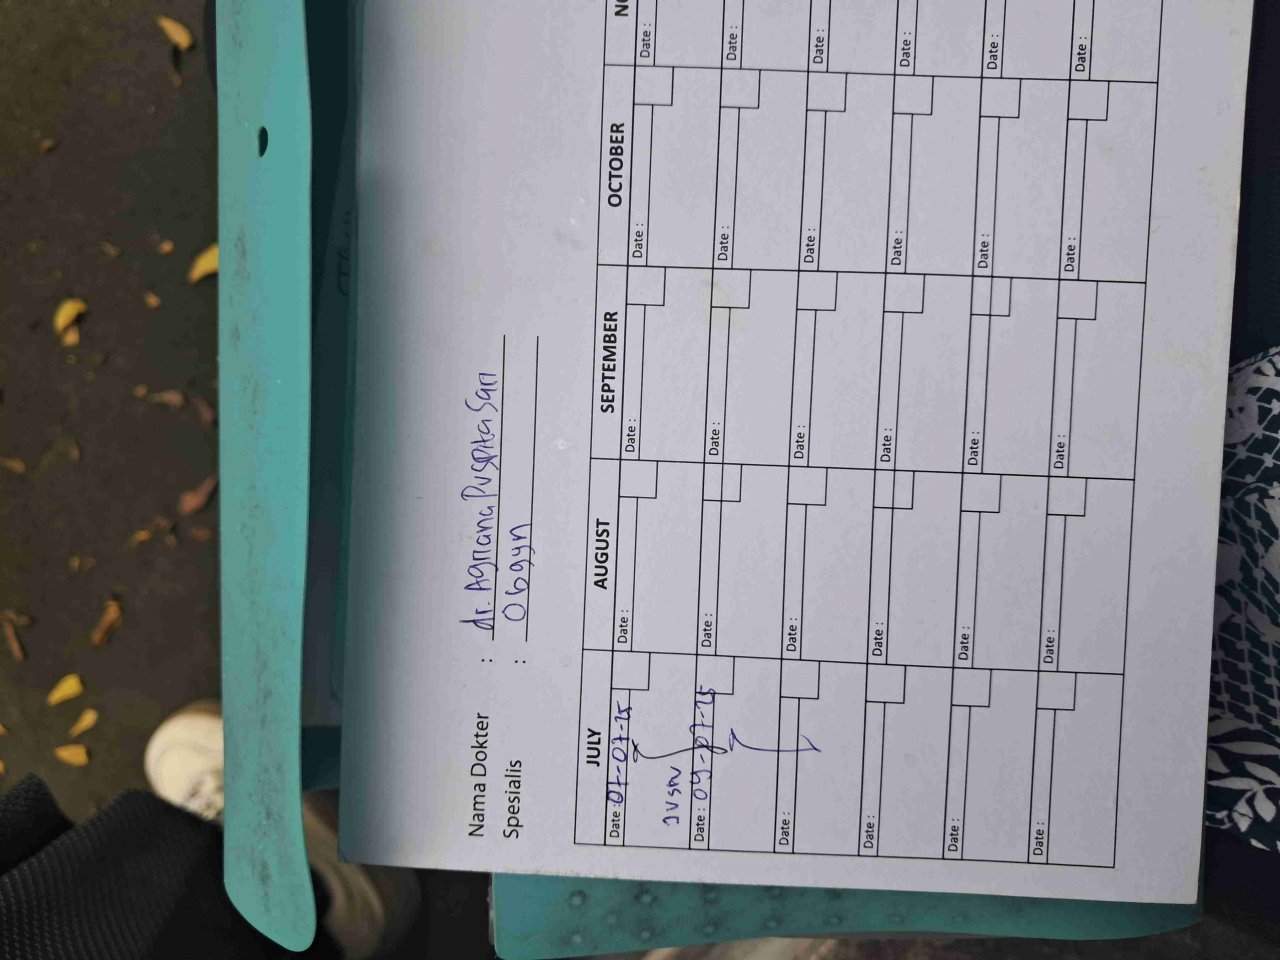 Nama Dokter : dr. Agriana Puspita Sari
Spesialis : Obgyn
JULY AUGUST SEPTEMBER OCTOBER
Date : 07-07-25 Date : Date : Date : Date :
Date : 09-07-25 Date : Date : Date : Date :
Date : Date : Date : Date : Date :
Date : Date : Date : Date : Date :
Date : Date : Date : Date : Date :
Date : Date : Date : Date : Date :